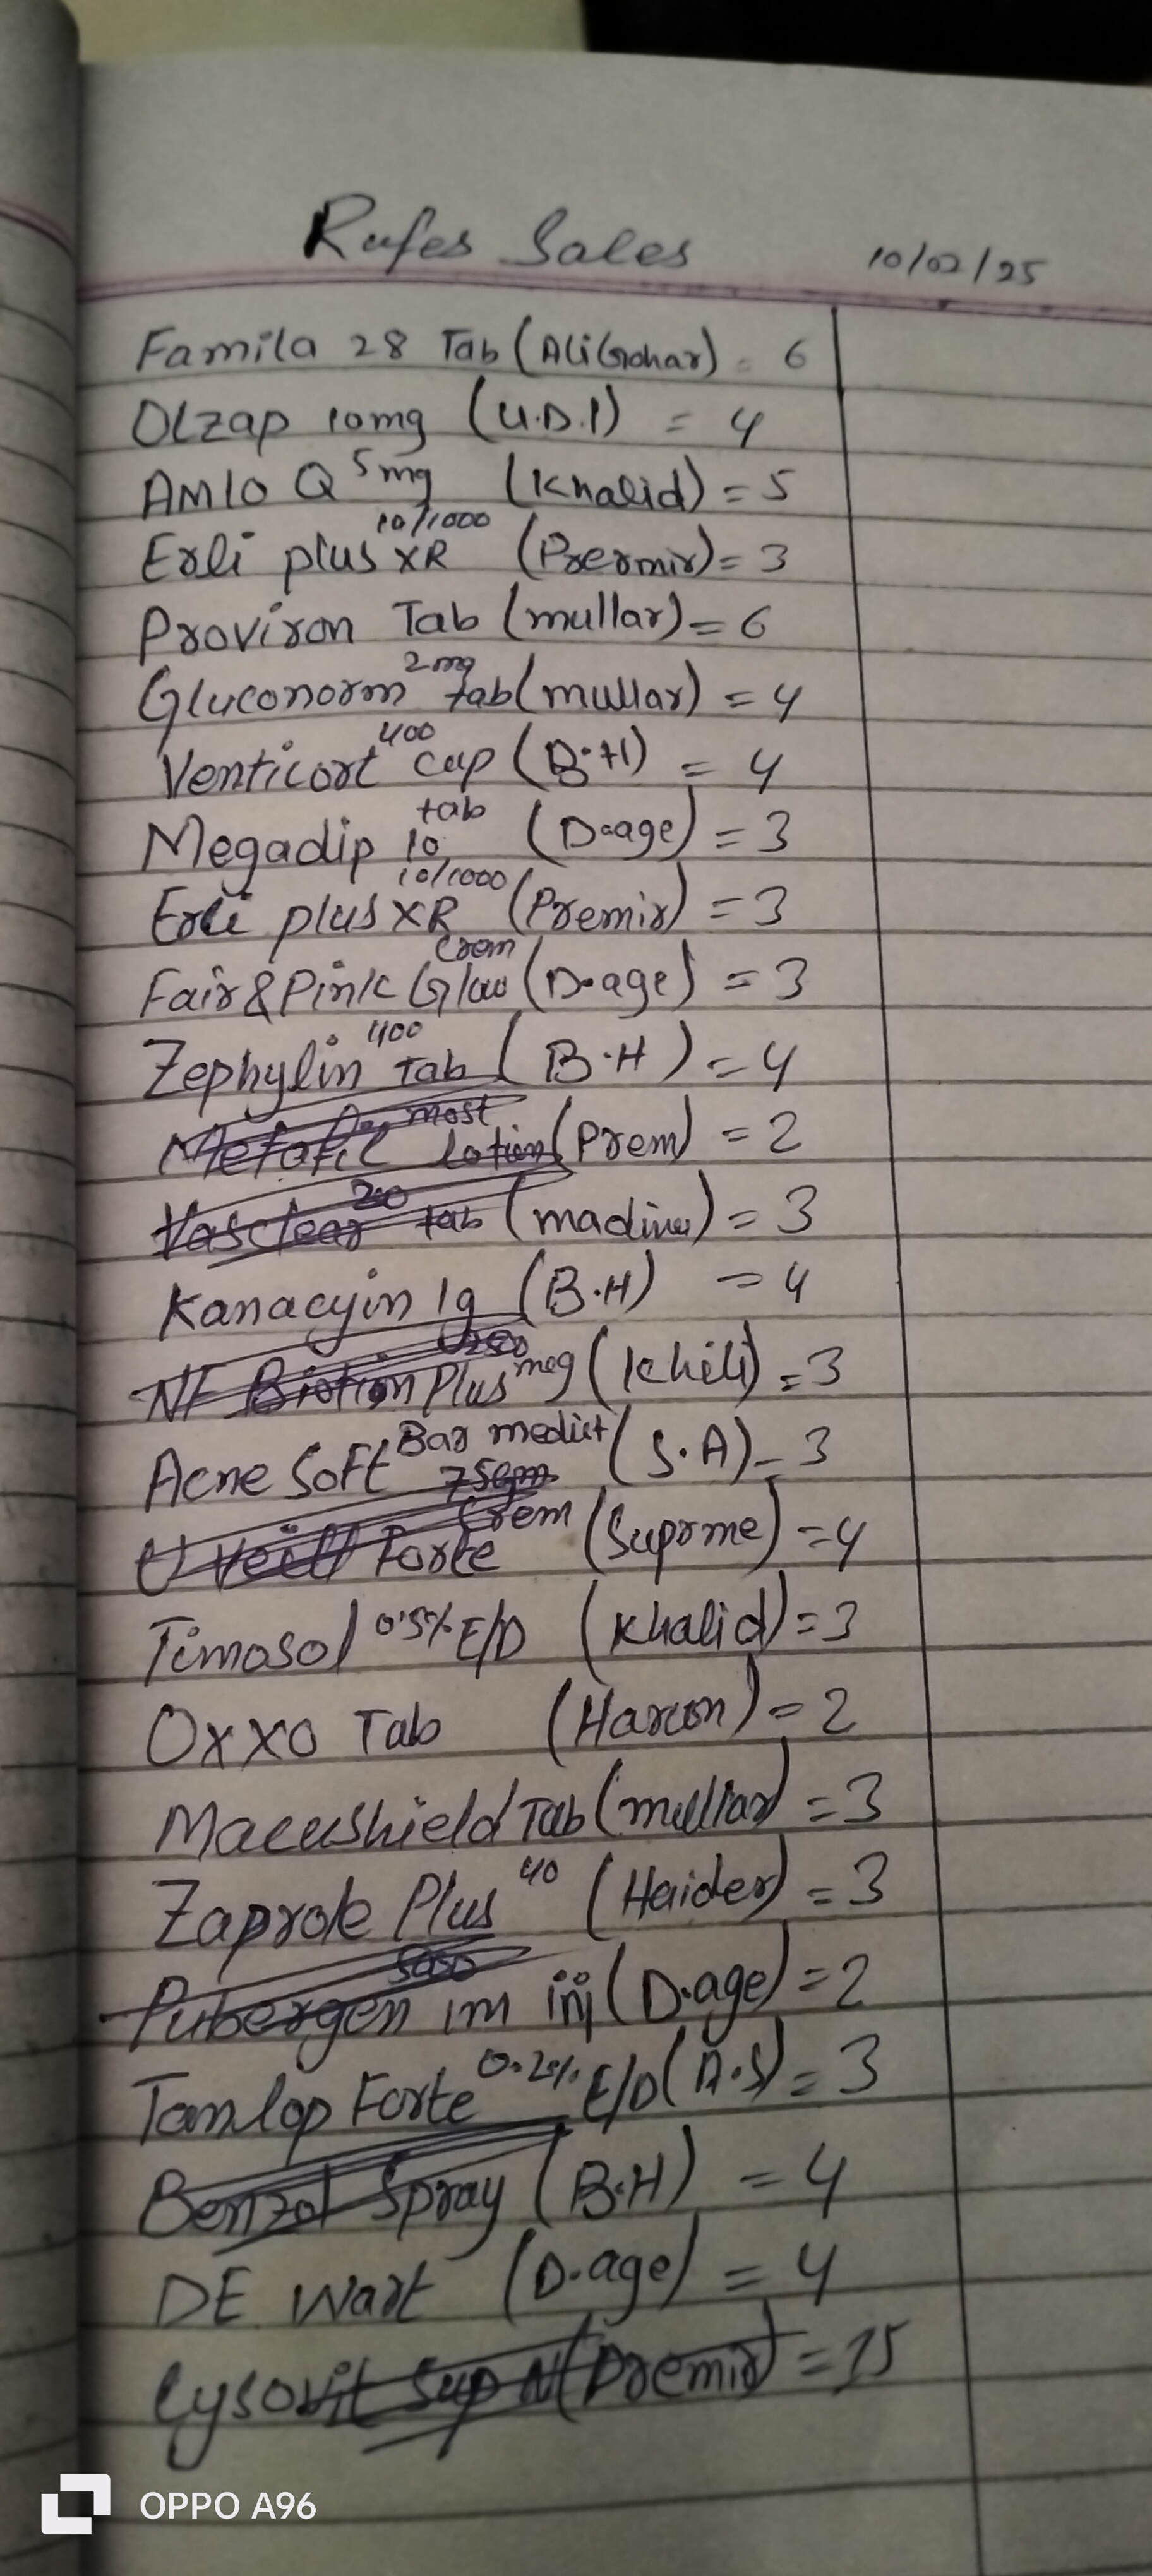 Rufes Sales 10/02/25
Famila 28 Tab (Ali Gohar) = 6
Olzap 10mg (U.D.I) = 4
Amlo Q 5mg (Khalid) = 5
Erli plus XR 10/1000 (Preomir) = 3
Proviron Tab (mullar) = 6
Gluconorm 2mg tab (mullar) = 4
Venticort 400 cap (B.H) = 4
Megadip 10 tab (D.age) = 3
Erli plus XR 10/1000 (Premir) = 3
Fair & Pink Glow Crem (D.age) = 3
Zephylin 400 Tab (B.H) = 4
most lotion (Prem) = 2
Vasclear 200 tab (madina) = 3
Kanacyin 1g (B.H) = 4
NF Biotion Plus mcg (Khili) = 3
Acne Soft Bar 75gm (S.A) = 3
Forte Crem (Suprme) = 4
Timosol 0.5% E/D (Khalid) = 3
Oxxo Tab (Haroon) = 2
Macushield Tab (mullar) = 3
Zaprole Plus 40 (Haider) = 3
Pubergen 5000 im inj (D.age) = 2
Tamlop Forte 0.2% E/D (A.S) = 3
Benzol Spray (B.H) = 4
DE Wart (D.age) = 4
Lysovit Sup (Premir) = 15
OPPO A96